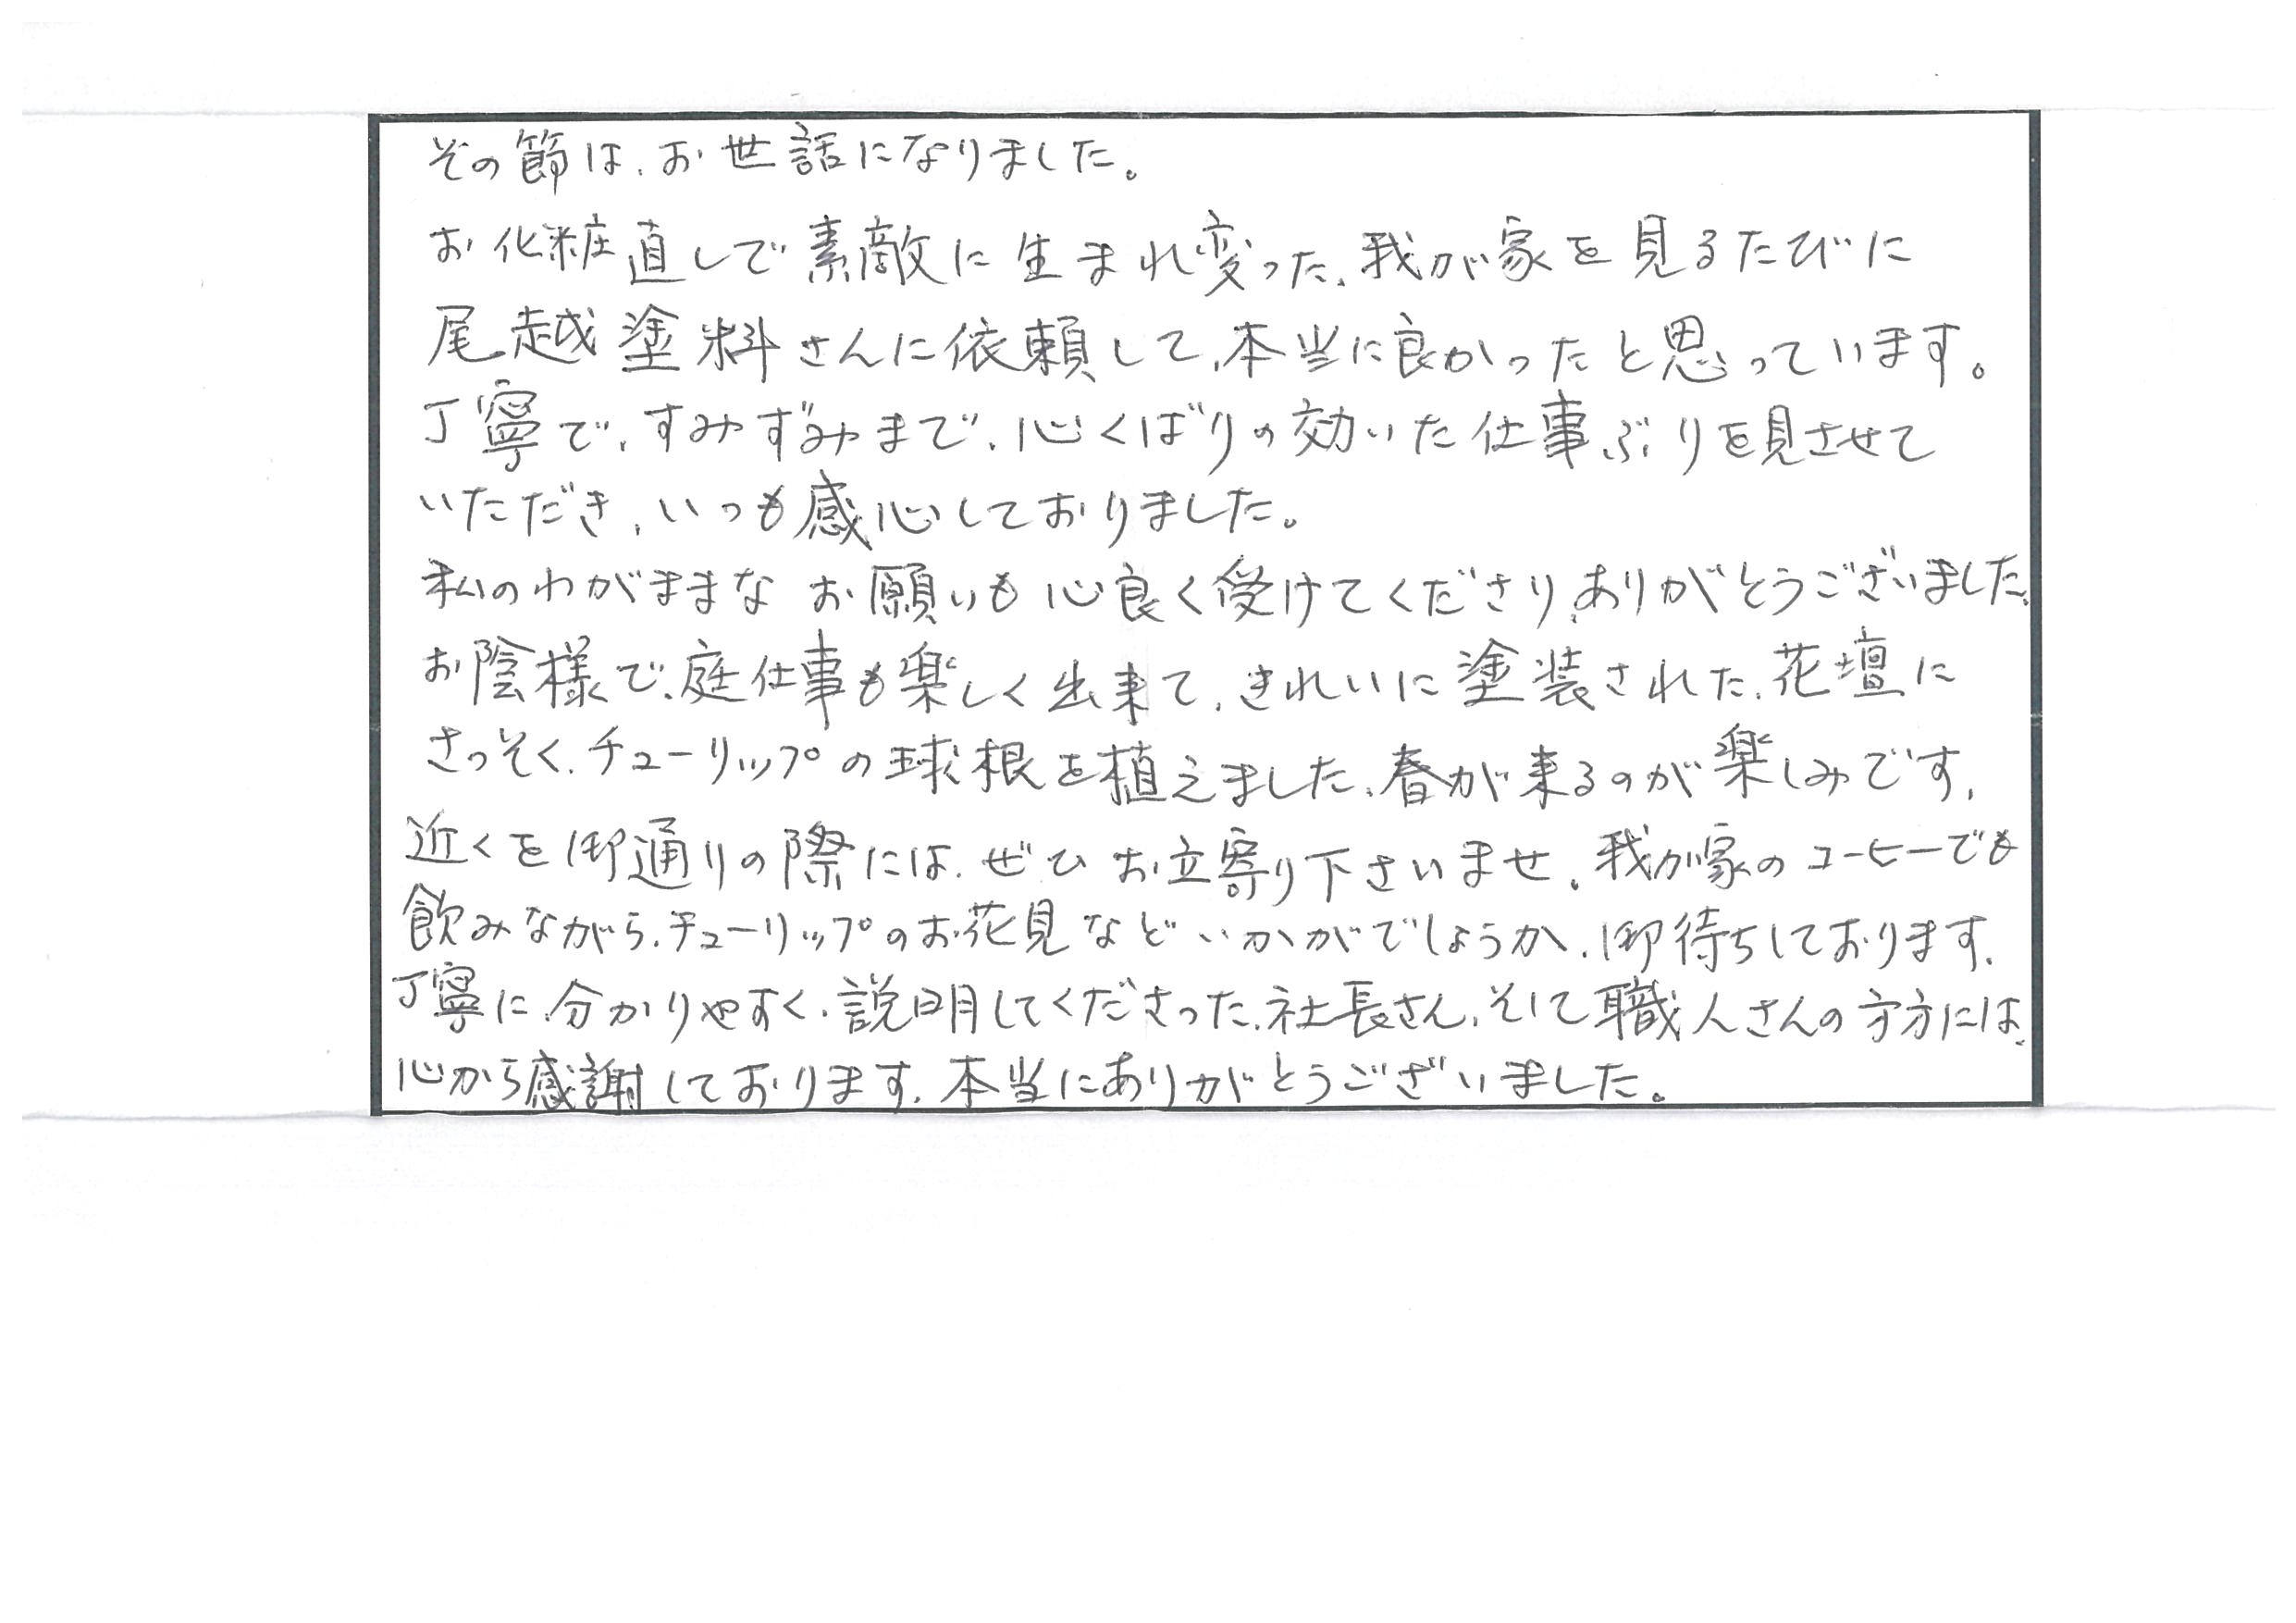 その節は、お世話になりました。
お化粧直しで素敵に生まれ変った、我が家を見るたびに
尾越塗料さんに依頼して、本当に良かったと思っています。
丁寧で、すみずみまで、心くばりの効いた仕事ぶりを見させて
いただき、いつも感心しておりました。
私のわがままなお願いも心良く受けてくださり、ありがとうございました、
お陰様で、庭仕事も楽しく出来て、きれいに塗装された、花壇に
さっそく、チューリップの球根を植えました、春が来るのが楽しみです、
近くを御通りの際には、ぜひお立寄り下さいませ。我が家のコーヒーでも
飲みながら、チューリップのお花見などいかがでしょうか、御待ちしております、
丁寧に、分かりやすく、説明してくださった、社長さん、そして職人さんの方方には、
心から感謝しております、本当にありがとうございました。